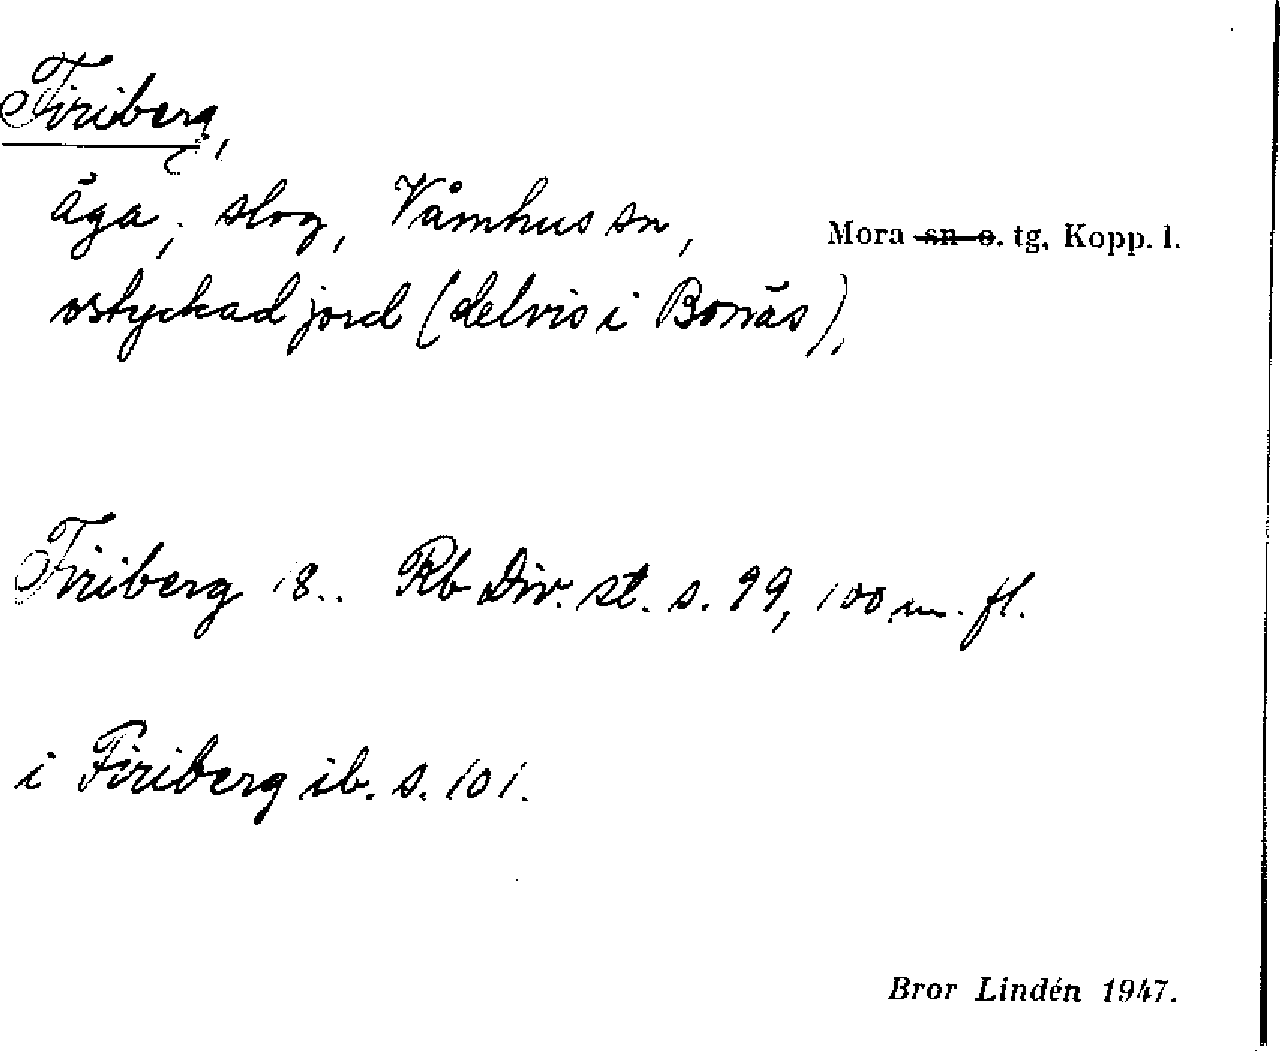 Firiberg,
äga; slog, Våmhus sn, Mora sn o. tg, Kopp. l.
ostyckad jord (delvis i Bonäs),
Firiberg 18.. Rb Div. st. s. 99, 100 m. fl.
i Firiberg ib. s. 101.
Bror Lindén 1947.